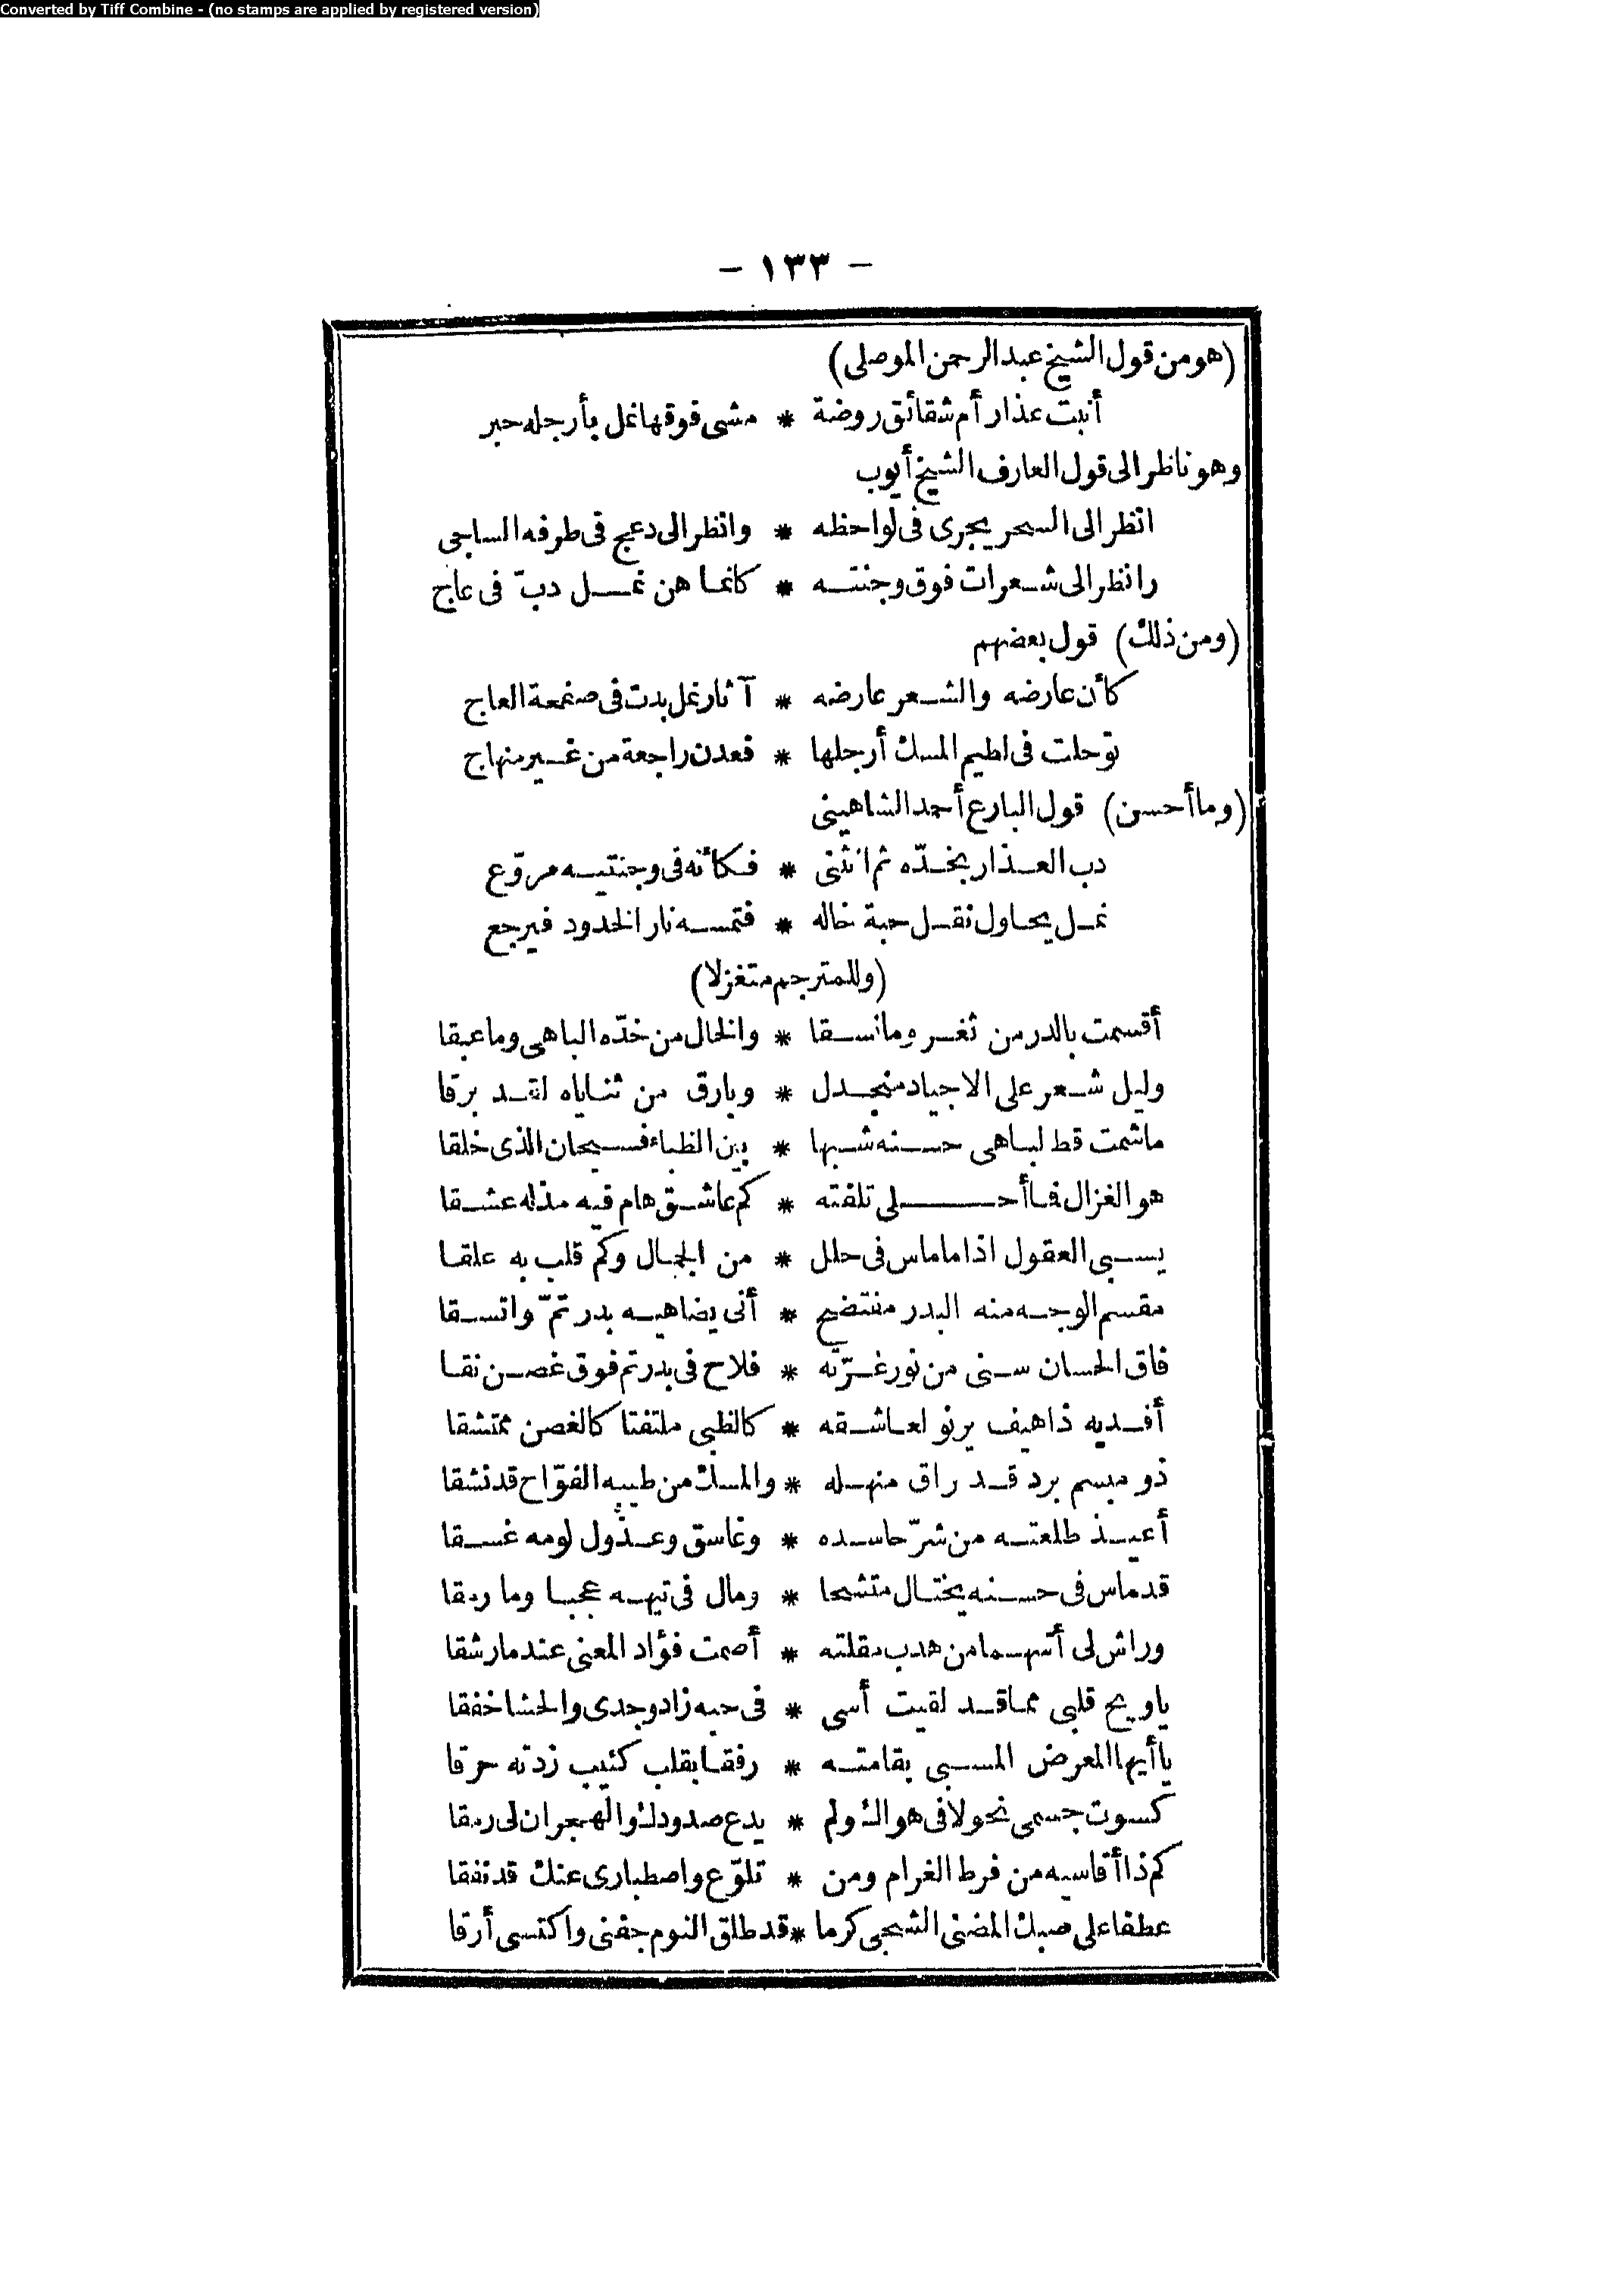 Converted by Tiff Combine - (no stamps are applied by registered version)
- ١٣٣ -
(هو من قول الشيخ عبد الرحمن الموصلى)
أنبت عذار أم شقائق روضة * مشى فوقها نمل بأرجله حبر
وهو ناظر الى قول العارف الشيخ أيوب
انظر الى السحر يجرى فى لواحظه * وانظر الى دعج فى طرفه الساجى
وانظر الى شعرات فوق وجنته * كانما هن نمل دبّ فى عاج
(ومن ذلك) قول بعضهم
كأن عارضه والشعر عارضه * آثار نمل بدت فى صفحة العاج
توحلت فى لطيم المسك أرجلها * فعدن راجعة من غير منهاج
(وما أحسن) قول البارع أحمد الشاهينى
دب العذار بخدّه ثم انثنى * فكأنه فى وجنتيه مروّع
نمل يحاول نقل حبة خاله * فتمسه نار الخدود فيرجع
(وللمترجم متغزلا)
أقسمت بالدر من ثغر ومانسقا * والخال من خدّه الباهى وما عبقا
وليل شعر على الاجياد منجدل * وبارق من ثناياه لقد برقا
ماشمت قط لباهى حسنه شبها * بين الظباء فسبحان الذى خلقا
هو الغزال فما أحلى تلفته * كم عاشق هام فيه مذله عشقا
يسبى العقول اذا ماماس فى حلل * من الجمال وكم قلب به علقا
مقسم الوجه منه البدر مفتضح * أنى يضاهيه بدر تمّ واتسقا
فاق الحسان سنى من نور غرّته * فلاح فى بدرتم فوق غصن نقا
أفديه ذاهيف يرنو لعاشقه * كالظبى ملتفتا كالغصن ممتشقا
ذو مبسم برد قد راق منهله * والمسك من طيبه الفوّاح قد نشقا
أعيذ طلعته من شرّ حاسده * وغاسق وعذول لومه غسقا
قد ماس فى حسنه يختال متشحا * ومال فى تيهه عجبا وما رمقا
وراش لى أسهما من هدب مقلته * أصمت فؤاد المعنى عندما رشقا
ياويح قلبى مما قد لقيت أسى * فى حبه زاد وجدى والحشا خفقا
يا أيها المعرض المسبى بقامته * رفقا بقلب كئيب زدته حرقا
كسوت جسمى نحولا فى هواك ولم * يدع صدودك والهجران لى رمقا
كم ذا أقاسيه من فرط الغرام ومن * تلوّع واصطبارى عنك قد نفقا
عطفا على صبك المضنى الشجى كرما * قد طلق النوم جفنى واكتسى أرقا